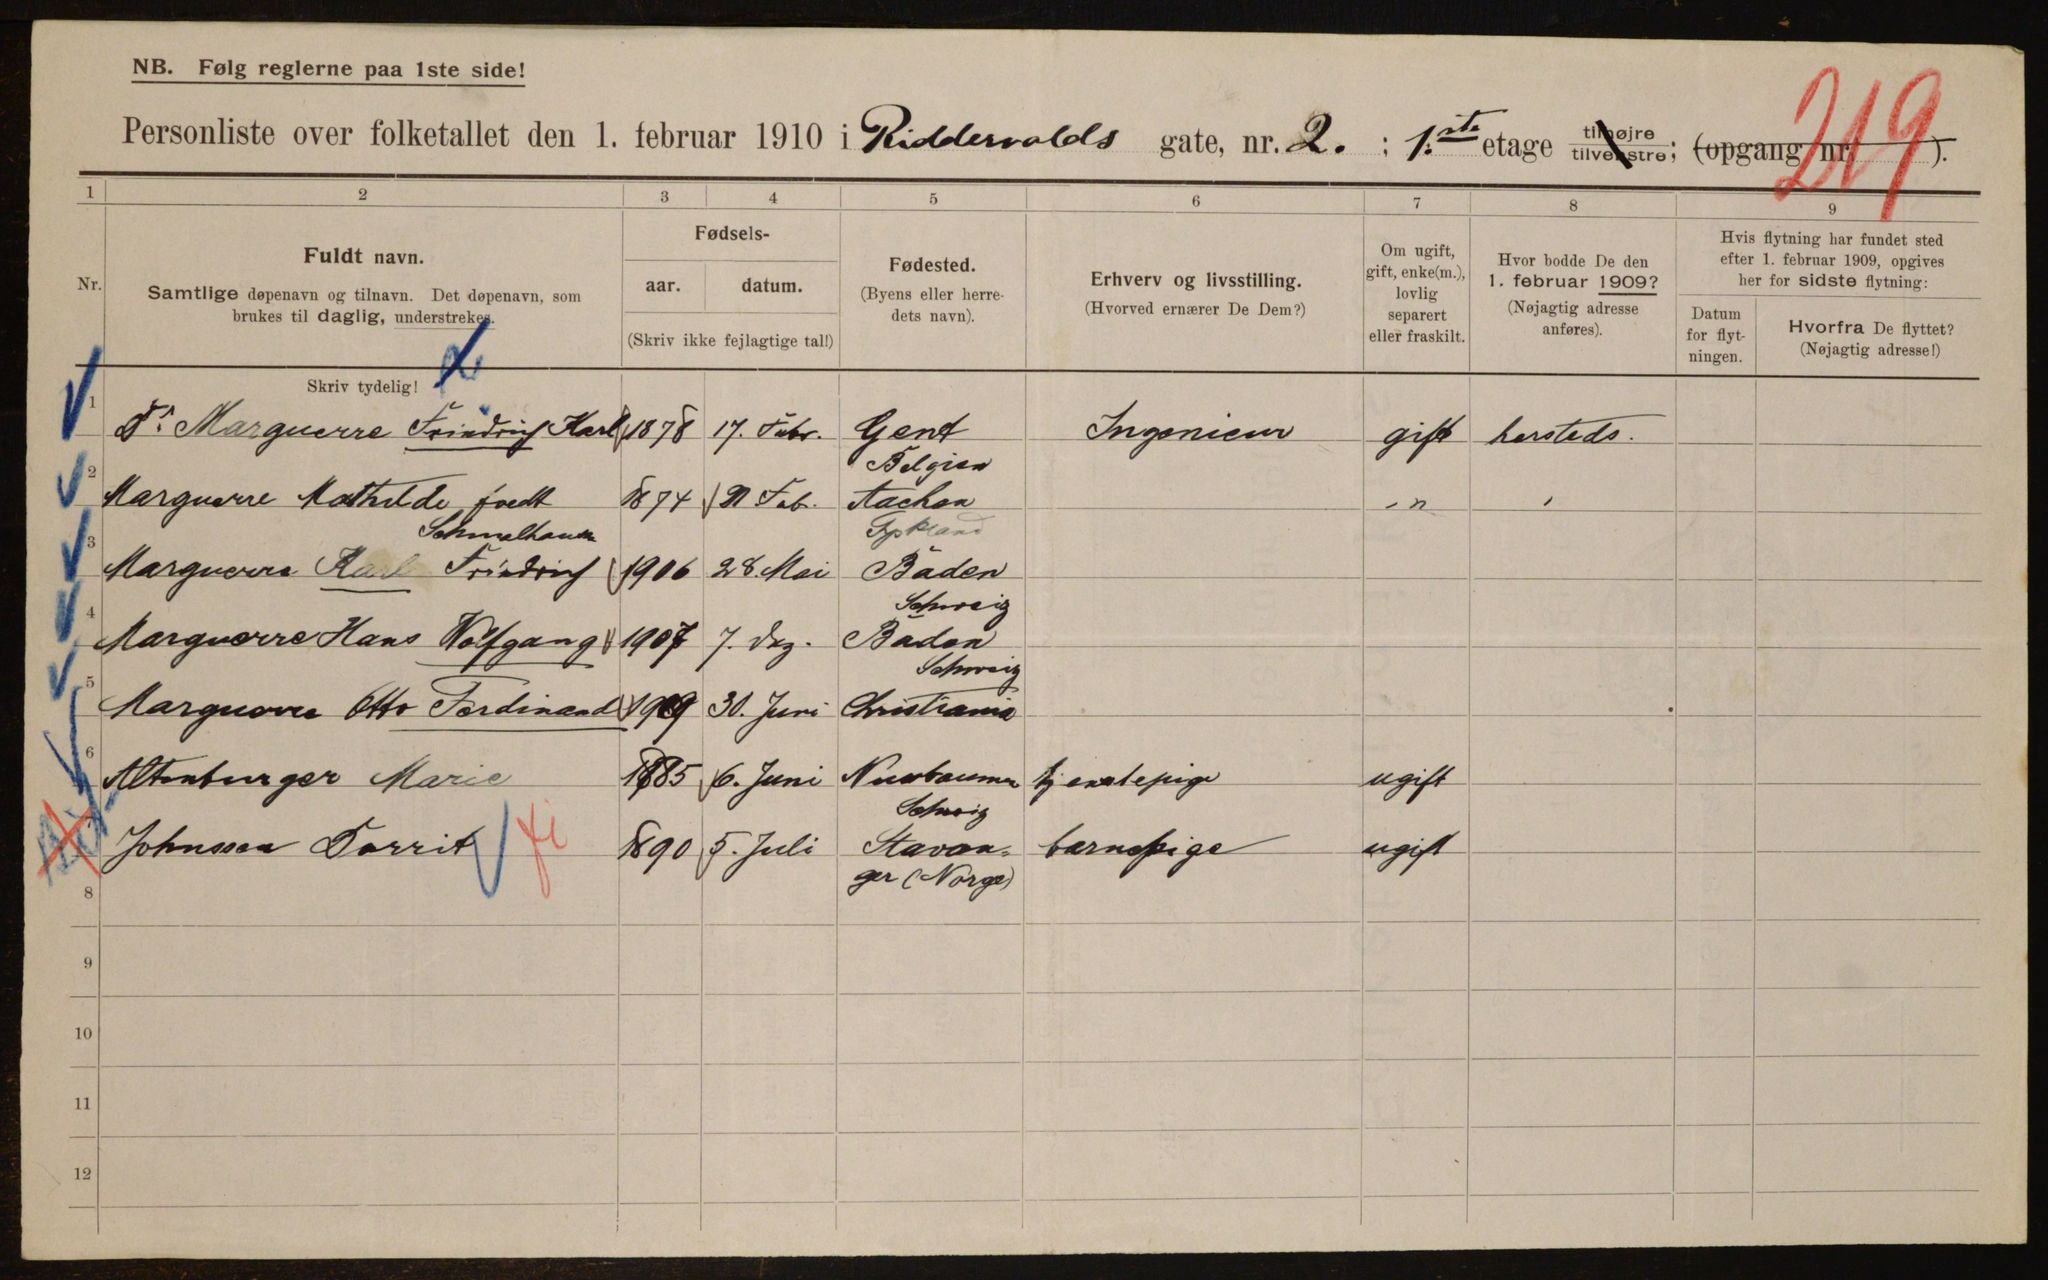 NB. Følg reglerne paa 1ste side!
219
Personliste over folketallet den 1. februar 1910 i Riddervolds gate, nr. 2. ; 1.ste etage tilhøjre tilvenstre; (opgang nr. ).
1 2 3 4 5 6 7 8 9
Nr.
Fuldt navn.
Samtlige døpenavn og tilnavn. Det døpenavn, som
brukes til daglig, understrekes.
Skriv tydelig!
Fødsels-
aar. datum.
(Skriv ikke fejlagtige tal!)
Fødested.
(Byens eller herre-
dets navn).
Erhverv og livsstilling.
(Hvorved ernærer De Dem?)
Om ugift,
gift, enke(m.),
lovlig
separert
eller fraskilt.
Hvor bodde De den
1. februar 1909?
(Nøjagtig adresse
anføres).
Hvis flytning har fundet sted
efter 1. februar 1909, opgives
her for sidste flytning:
Datum
for flyt-
ningen.
Hvorfra De flyttet?
(Nøjagtig adresse!)
1 Dr. Marguerre Friedrich Karl 1878 17. Febr. Gent Ingenieur gift hersteds.
Belgien
2 Marguerre Mathilde foedt 1874 21 Feb. Aachen " "
Schmalhausen Tyskland
3 Marguerre Karl Friedrich 1906 28. Mai Baden
Schweiz
4 Marguerre Hans Wolfgang 1907 7. Dez. Baden
Schweiz
5 Marguerre Otto Ferdinand 1909 30. Juni Christiania
6 Altenburger Marie 1885 6. Juni Nussbaumen tjenstepige ugift
Schweiz
7 Johnssen Dorrit 1890 5. Juli Stavan- barnepige ugift
ger (Norge)
8
9
10
11
12